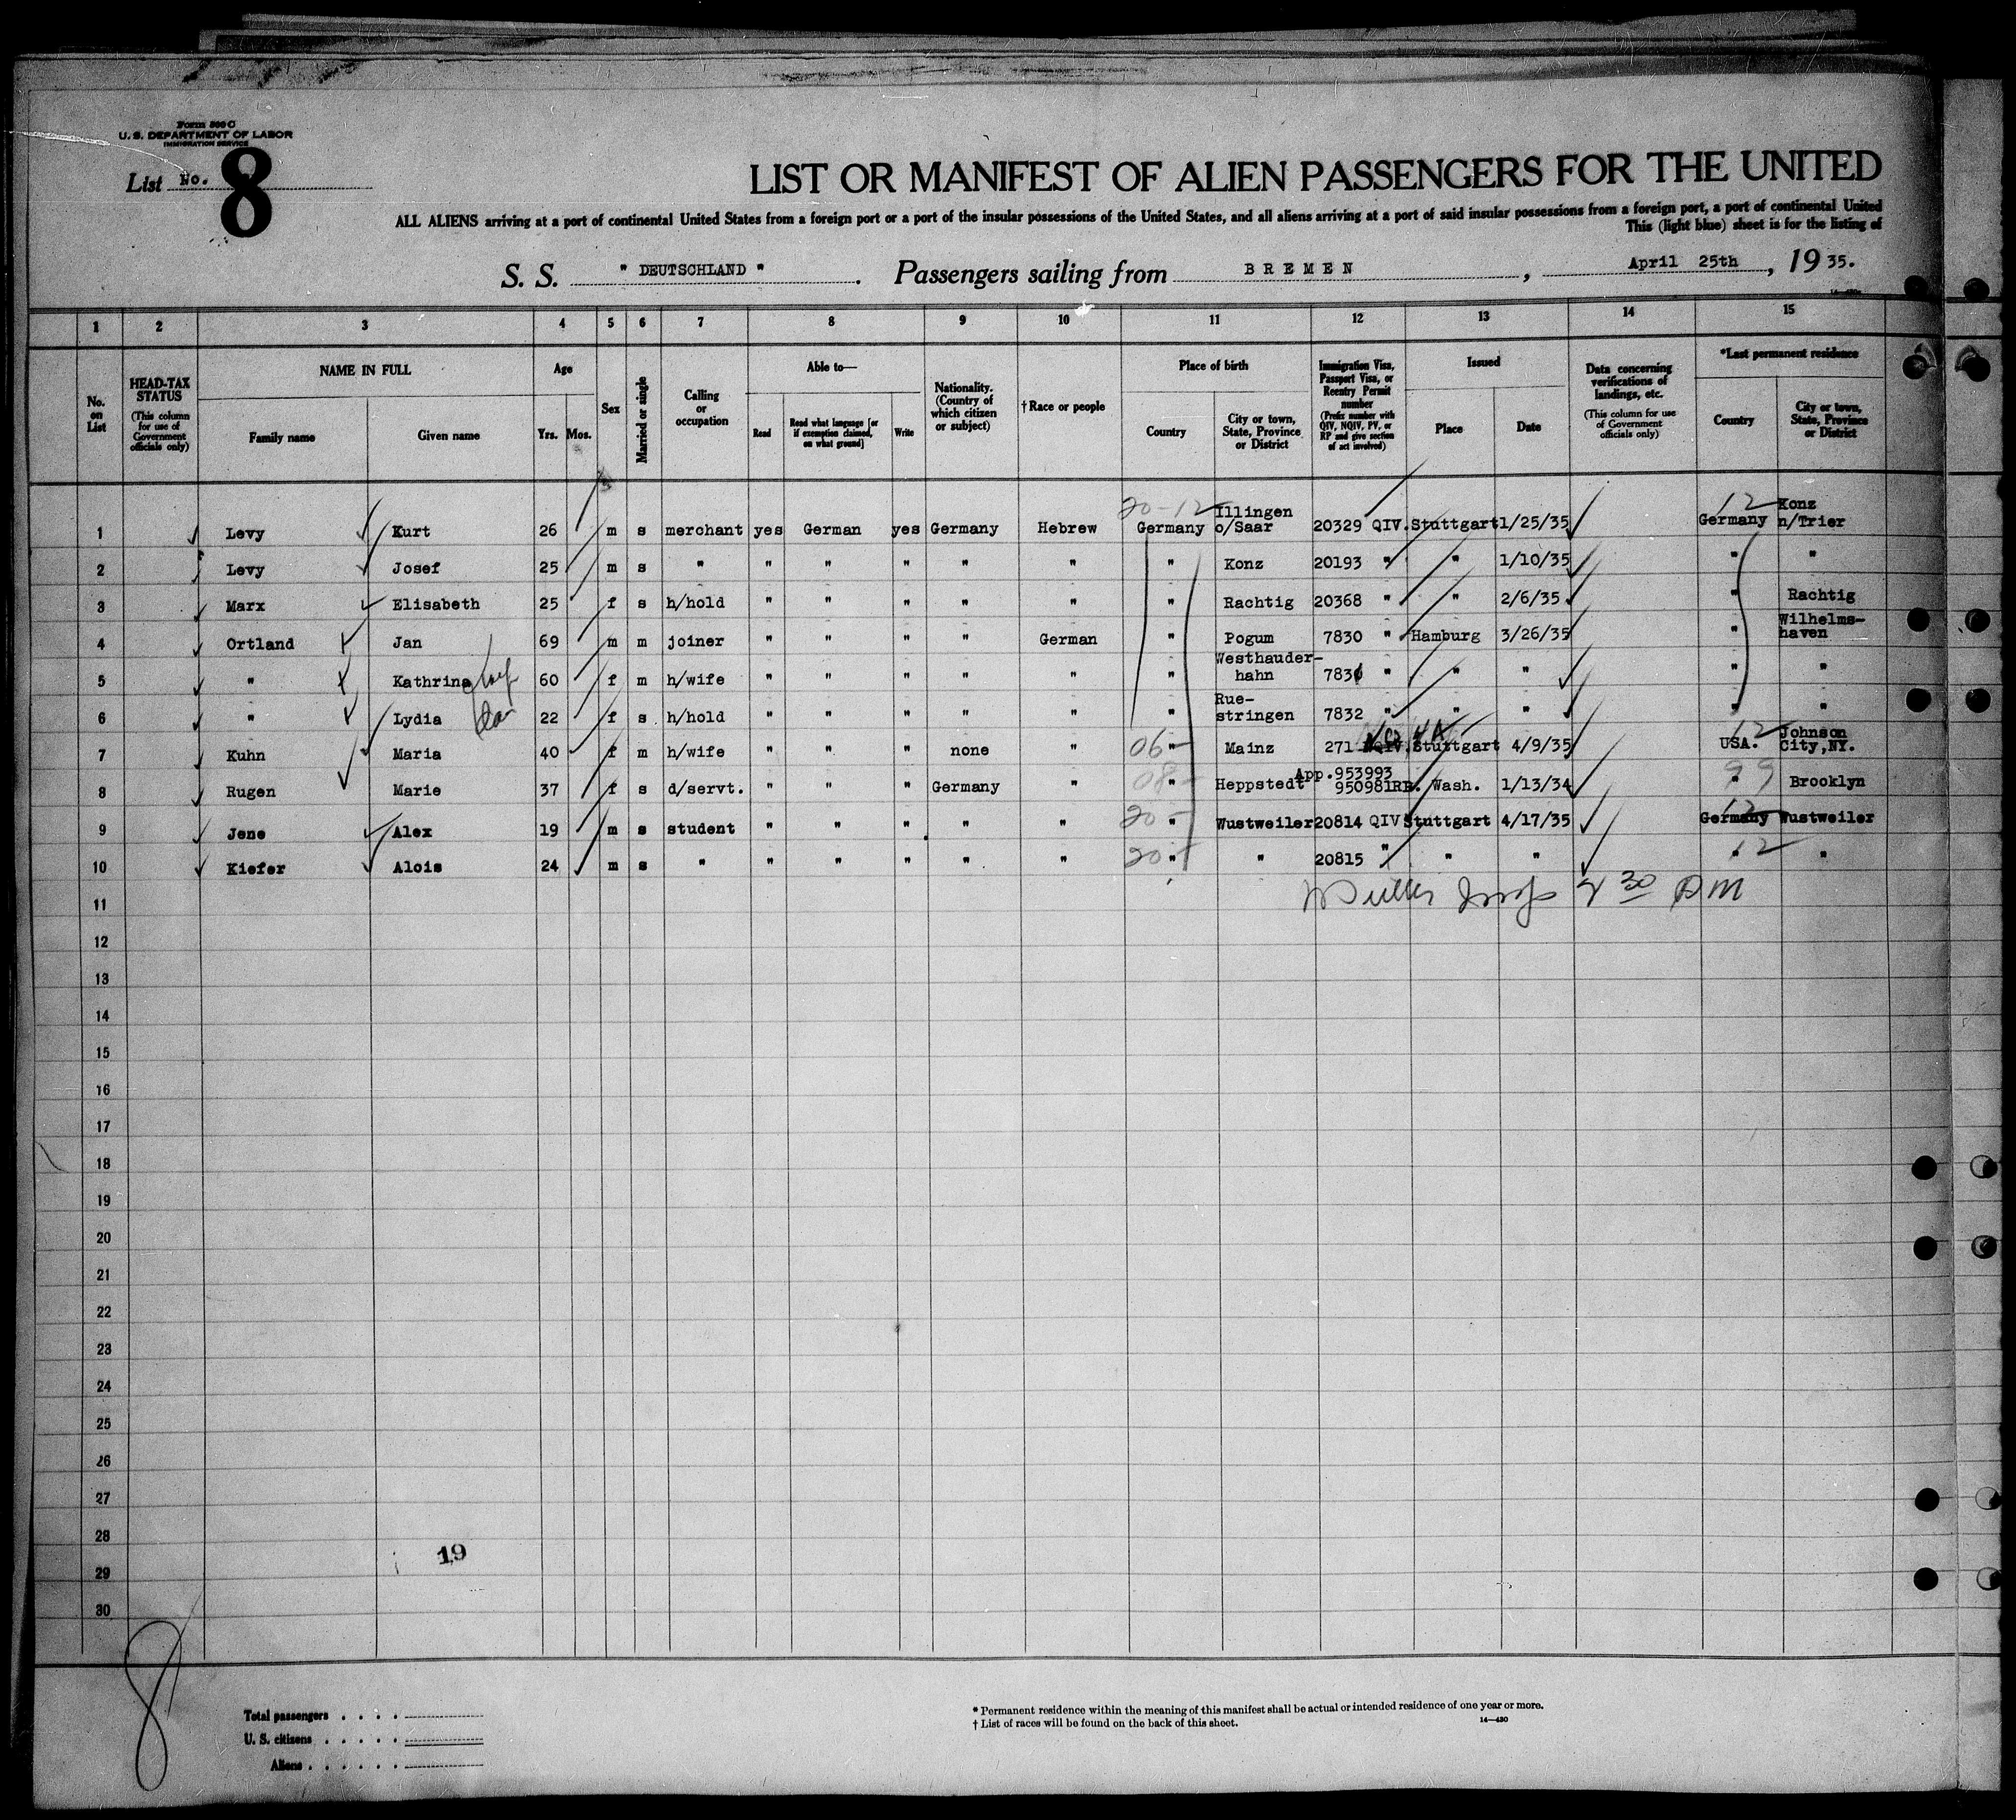 Form 500 C
U. S. DEPARTMENT OF LABOR
IMMIGRATION SERVICE
List No. 8
LIST OR MANIFEST OF ALIEN PASSENGERS FOR THE UNITED
ALL ALIENS arriving at a port of continental United States from a foreign port or a port of the insular possessions of the United States, and all aliens arriving at a port of said insular possessions from a foreign port, a port of continental United
This (light blue) sheet is for the listing of
S. S. " DEUTSCHLAND " . Passengers sailing from BREMEN , April 25th , 19 35.
1 2 3 4 5 6 7 8 9 10 11 12 13 14 15
No. on List
HEAD-TAX STATUS (This column for use of Government officials only)
NAME IN FULL
Family name Given name
Age
Yrs. Mos.
Sex
Married or single
Calling or occupation
Able to—
Read Read what language [or if exemption claimed, on what ground] Write
Nationality. (Country of which citizen or subject)
†Race or people
Place of birth
Country City or town, State, Province or District
Immigration Visa, Passport Visa, or Reentry Permit number (Prefix number with QIV, NQIV, PV, or RP and give section of act involved)
Issued
Place Date
Data concerning verifications of landings, etc. (This column for use of Government officials only)
*Last permanent residence
Country City or town, State, Province or District
20-12 12
1 Levy Kurt 26 m s merchant yes German yes Germany Hebrew Germany Illingen o/Saar 20329 QIV. Stuttgart 1/25/35 Germany Konz n/Trier
2 Levy Josef 25 m s " " " " " " " Konz 20193 " " 1/10/35 " "
3 Marx Elisabeth 25 f s h/hold " " " " " " Rachtig 20368 " " 2/6/35 " Rachtig
4 Ortland Jan 69 m m joiner " " " " German " Pogum 7830 " Hamburg 3/26/35 " Wilhelms-haven
5 " Kathrine 60 f m h/wife " " " " " " Westhauder-hahn 7831 " " " " "
6 " Lydia 22 f s h/hold " " " " " " Rue-stringen 7832 " " " " "
7 Kuhn Maria 40 f m h/wife " " " none " 06- " Mainz 271 NQIV. 4A Stuttgart 4/9/35 12 USA. Johnson City,NY.
8 Rugen Marie 37 f s d/servt. " " " Germany " 08- " Heppstedt App.953993 950981RP. Wash. 1/13/34 99 " Brooklyn
9 Jene Alex 19 m s student " " " " " 20- " Wustweiler 20814 QIV Stuttgart 4/17/35 12 Germany Wustweiler
10 Kiefer Alois 24 m s " " " " " " 20- " " 20815 " " " 12 " "
11 430 PM
12
13
14
15
16
17
18
19
20
21
22
23
24
25
26
27
28
19
29
30
8
Total passengers . . . .
U. S. citizens . . . . .
Aliens . . . . . .
* Permanent residence within the meaning of this manifest shall be actual or intended residence of one year or more.
† List of races will be found on the back of this sheet.
14—430